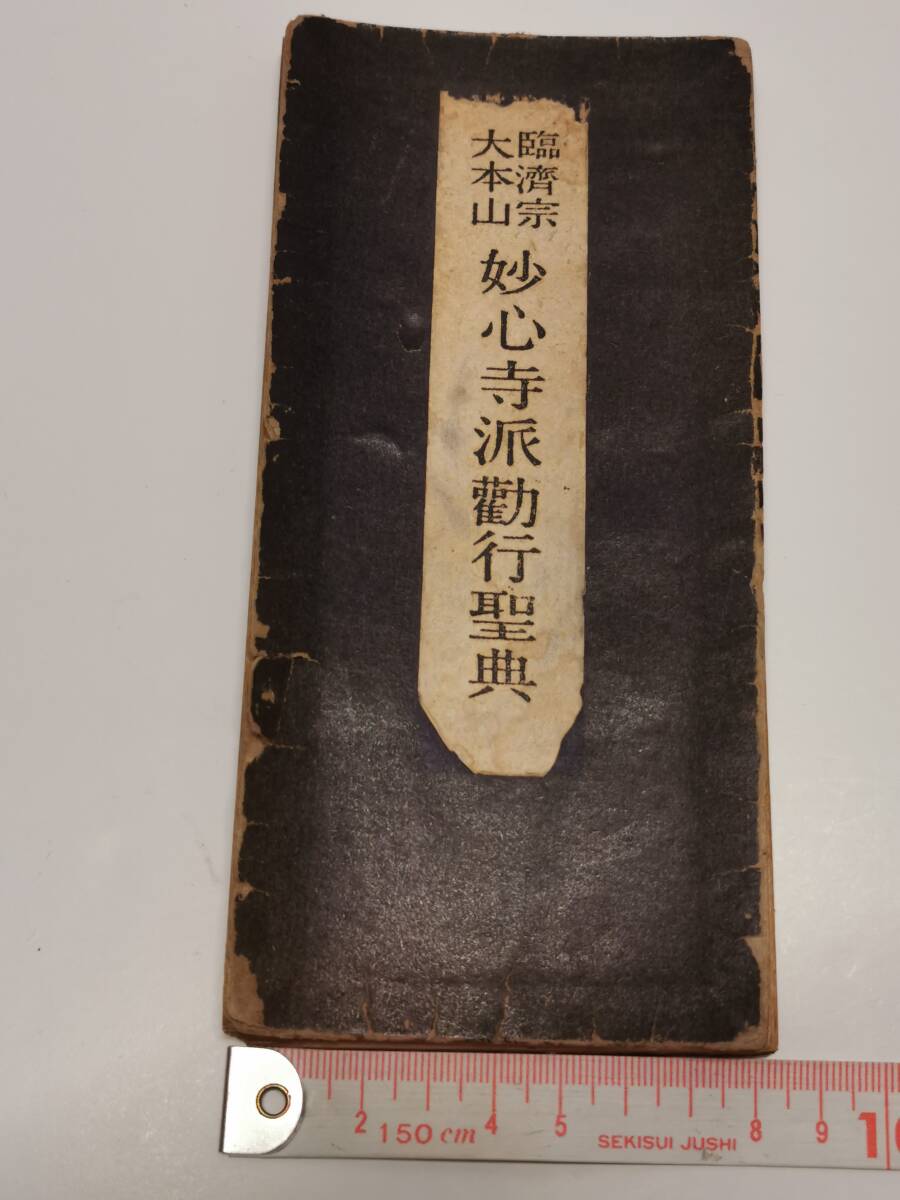 臨濟宗
大本山
妙心寺派勸行聖典
2 150cm 4 5 SEKISUI JUSHI 8 9 10